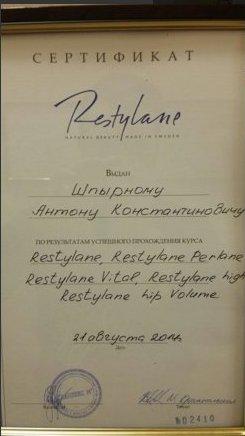 СЕРТИФИКАТ
Restylane
NATURAL BEAUTY MADE IN SWEDEN
ВЫДАН
Шпырному
Антону Константиновичу
ПО РЕЗУЛЬТАТАМ УСПЕШНОГО ПРОХОЖДЕНИЯ КУРСА
Restylane, Restylane Perlane
Restylane Vital, Restylane high
Restylane Lip Volume
21 августа
Дата
№02410